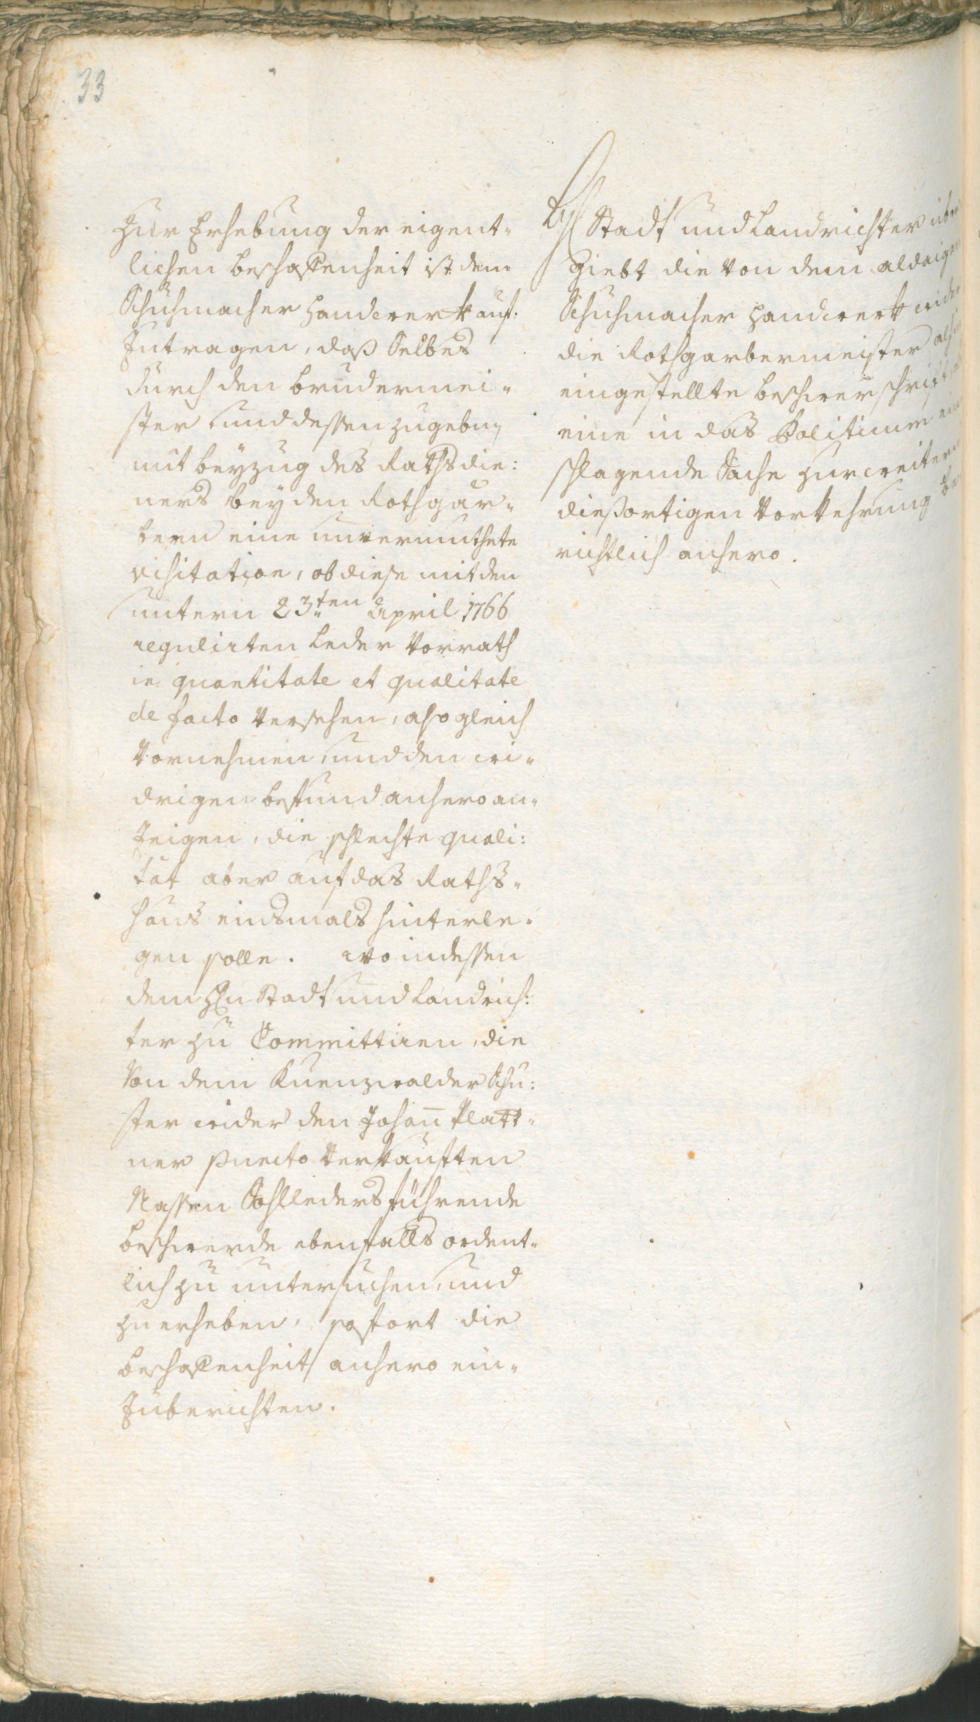 33
Zur Erhebung der eigent-
lichen beschaffenheit ist dem
Schuhmacher Handwerk auf-
zutragen, daß Selbes
durch den brudermei-
ster und dessen zugebn
mit beyzug des Rathsdie:
ners bey den Rothgär-
bern eine unvermuthete
visitation, ob diese mit den
untern 23.ten April 1766
regulirten Leder Vorrath
in quantitate et qualitate
de facto versehen, alsogleich
vornehmen, und den wi-
drigen befund anhero an-
zeigen, die schlechte quali:
tät aber auf das Raths-
haus einsmals hinterle-
gen solle. wo indessen
dem Hn Stadt und Landrich:
ter zu Committiren, die
von dem Kuenzwalder Schu:
ster wider den Johan̄ Platt-
ner puncto verkauften
Nassen Sohlleders führende
beschwerde ebenfalls ordent-
lich zu untersuchen, und
zu erheben, sofort die
beschaffenheit anhero ein-
zuberichten.
Stadt und Landrichter über
giebt die von dem aldaigen
Schuhmacher Handwerk wider
die Rothgarbermeister als
eingestellte beschwerschrift
eine in das Politicum ein
schlagende Sache zur weitern
diessortigen Vorkehrung be
richtlich anhero.